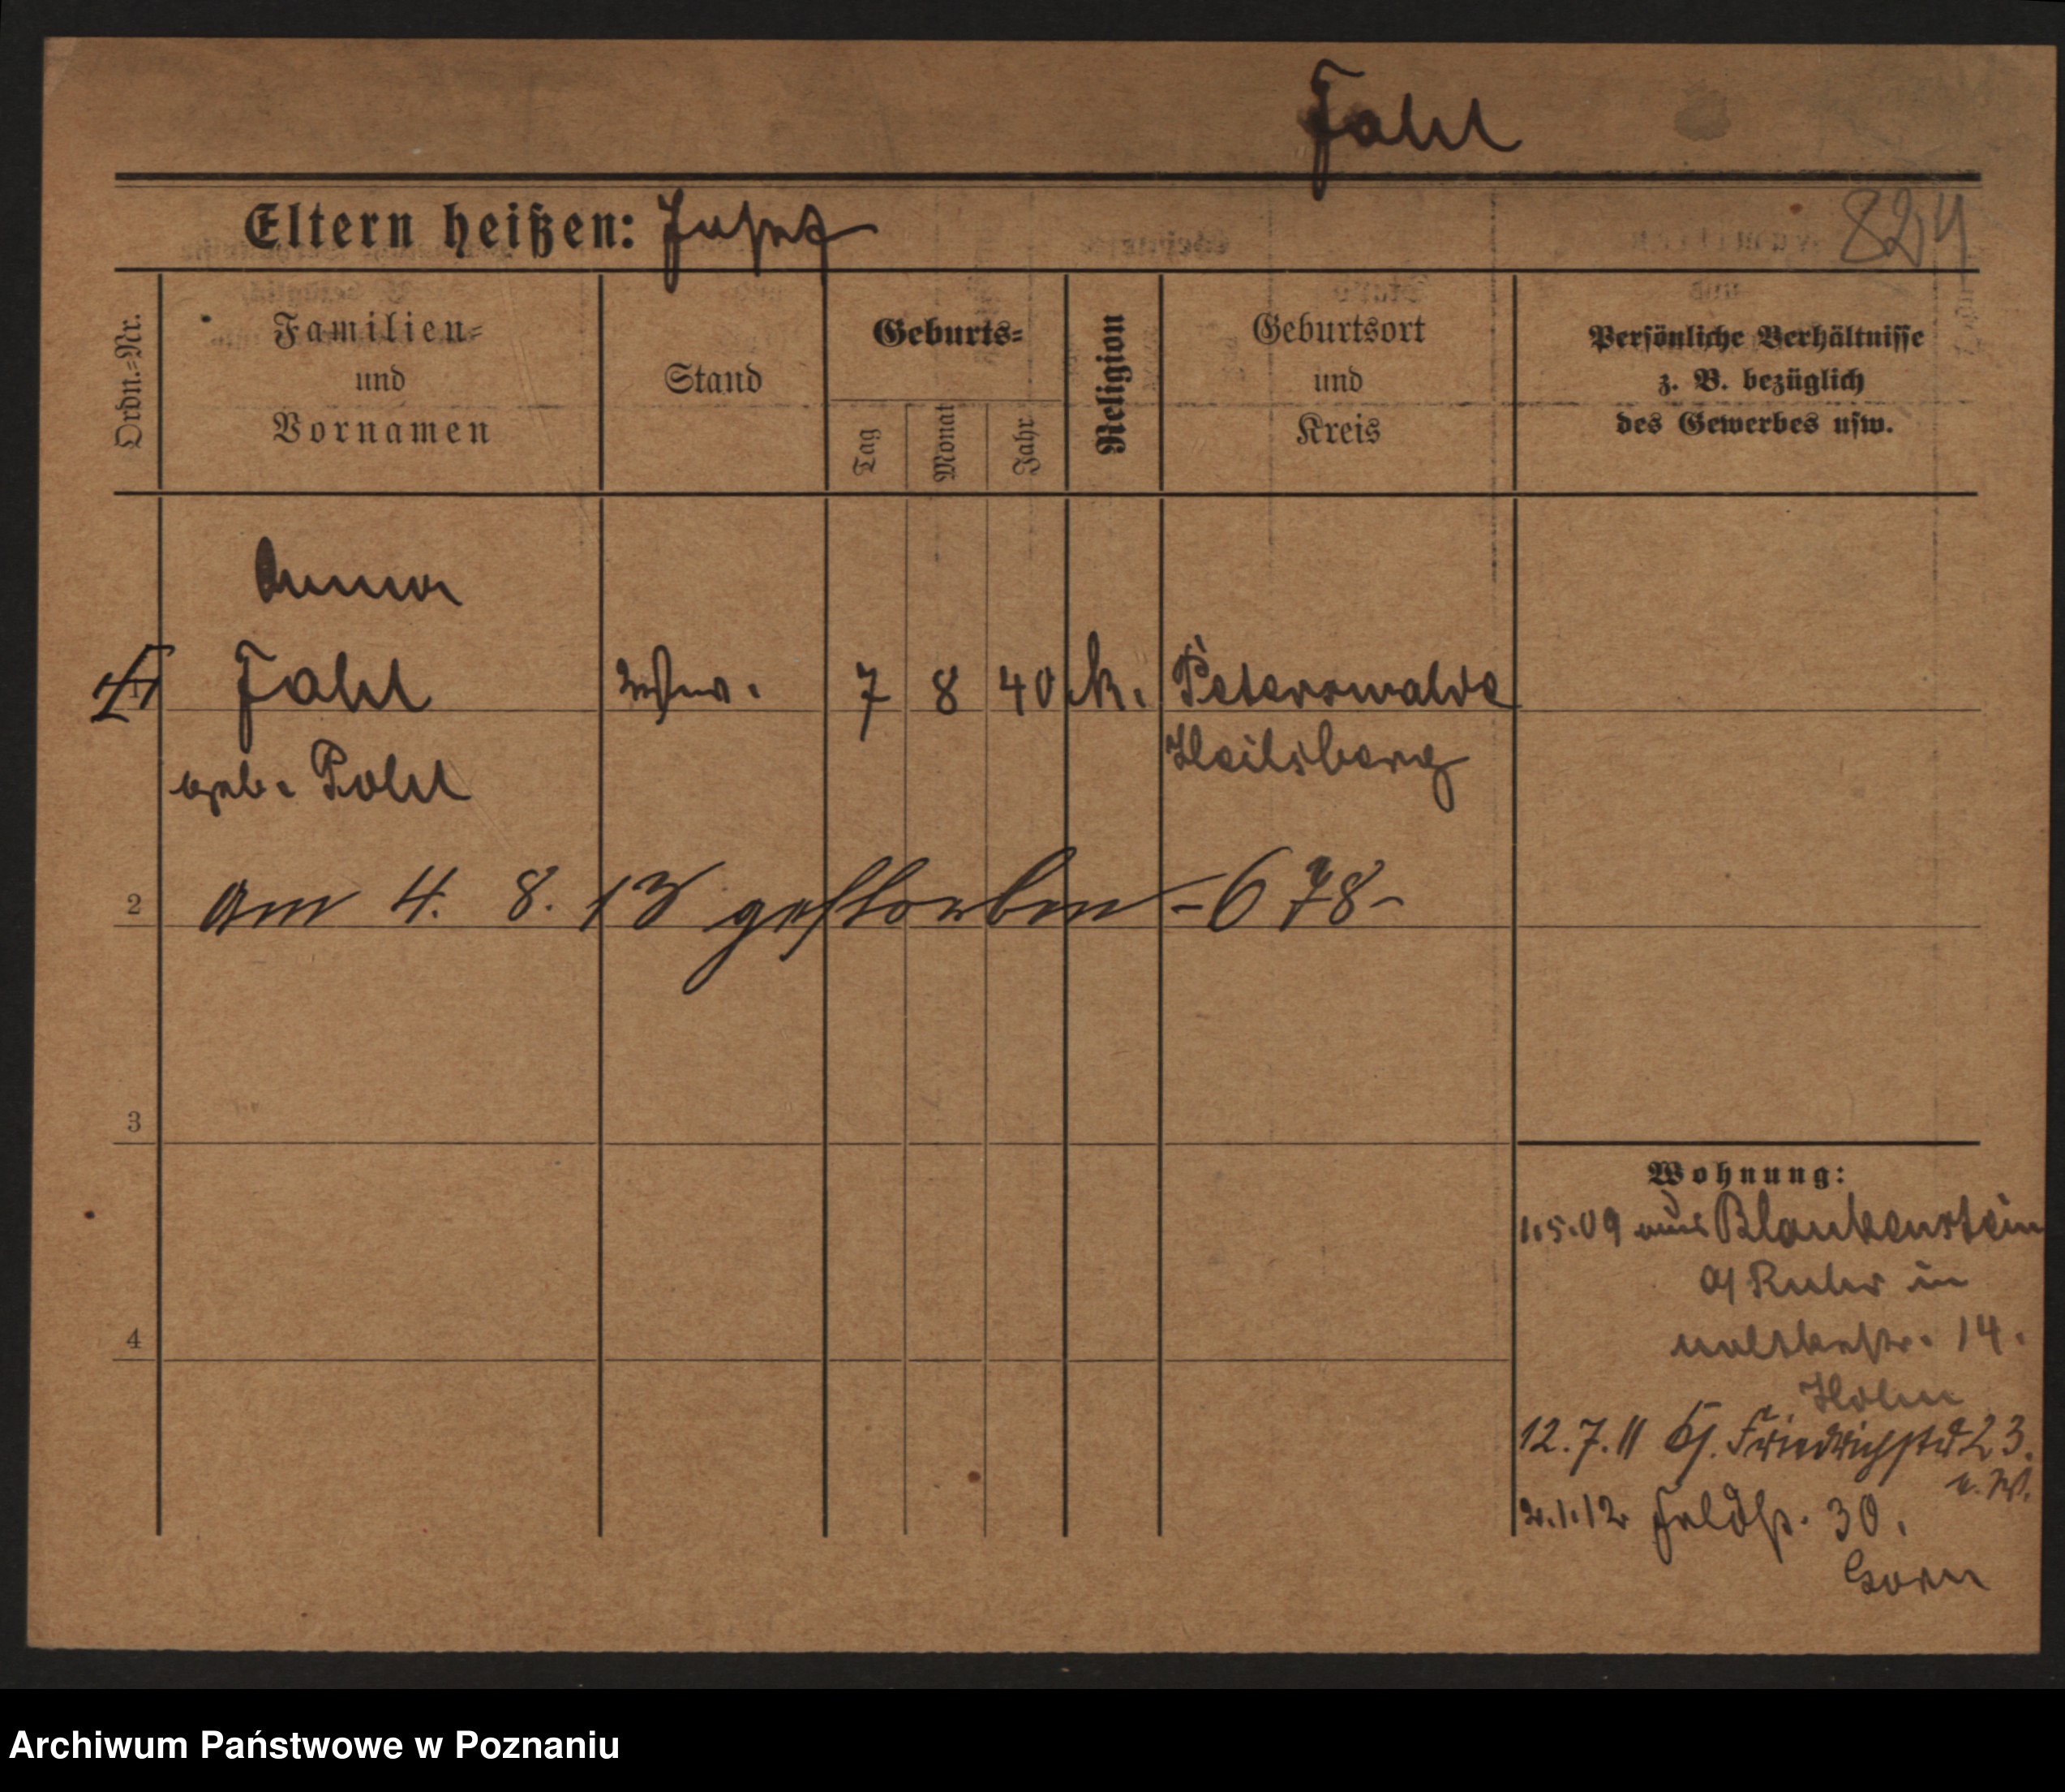 Fahl
Eltern heißen: Josef
824
Ordn.-Nr.
Familien-
und
Vornamen
Stand
Geburts-
Tag
Monat
Jahr
Religion
Geburtsort
und
Kreis
Persönliche Verhältnisse
z. B. bezüglich
des Gewerbes usw.
Anna
1 Fahl Wwe. 7 8 40 k. Peterswalde
Heilsberg
geb. Pohl
2 am 4. 8. 13 gestorben - 678 -
3
4
Wohnung:
1.5.09 aus Blankenstein
a/ Ruhr in
Moltkestr. 14.
12.7.11 Gr. Friedrichstr 23.
2.1.12 Feldstr. 30.
Archiwum Państwowe w Poznaniu